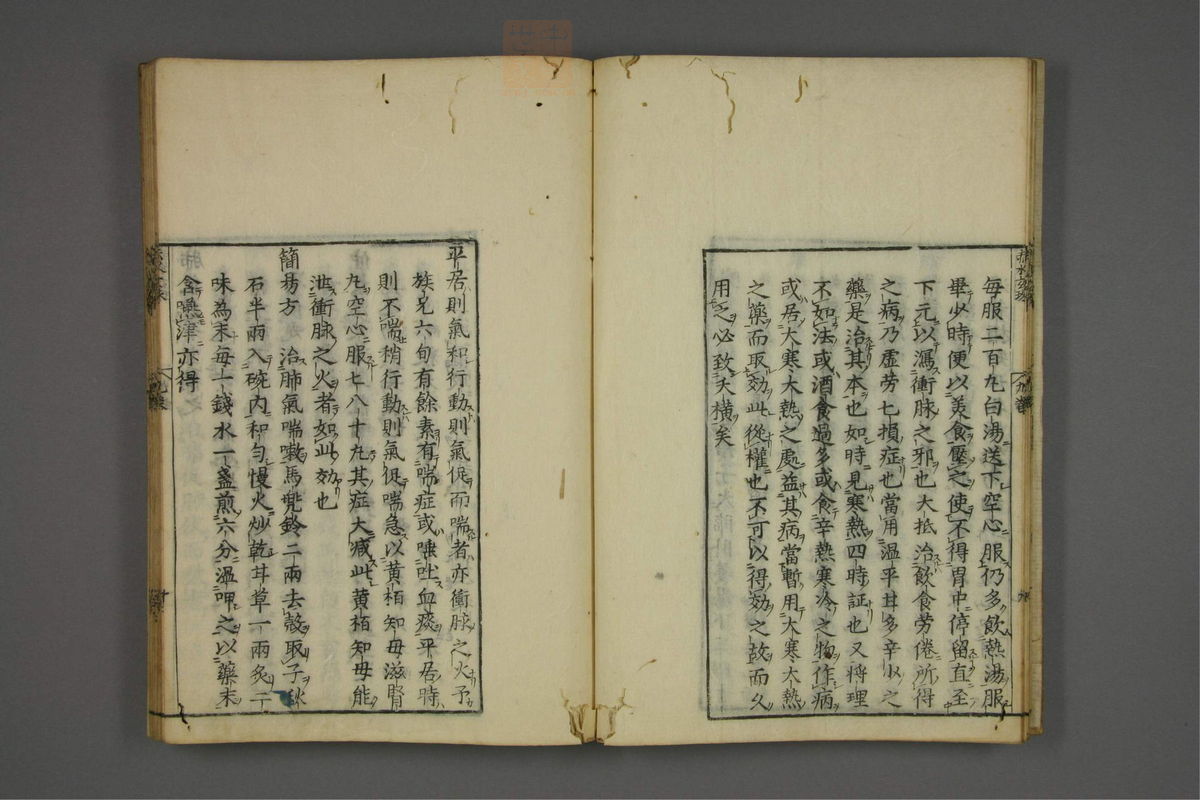 毎服二百丸白湯送下空心服仍多飲熱湯服
畢少時便以美食壓之使不得胃中停留直至
下元以瀉衝脉之邪也大抵治飲食劳倦所得
之病乃虚劳七損症也當用温平甘多辛少之
藥是治其本也如時見寒熱四時証也又将理
不如法或酒食過多或食辛熱寒冷之物作病
或居大寒大熱之處益其病當暫用大寒大熱
之藥而取効此從權也不可以得効之故而久
用之必致夭横矣
平居則氣和行動則氣促而喘者亦衝脉之火予
族兄六旬有餘素有喘症或唾吐血痰平居時
則不喘梢行動則氣促喘急以黄栢知母滋腎
丸空心服七八十丸其症大减此黄栢知母能
泄衝脉之火者如此効也
簡易方 治肺氣喘嗽馬兠鈴二兩去殻取子秋
石半兩入碗内和匀慢火炒乾甘草一兩炙二
味為末毎一錢水一盞煎六分温呷之以藥末
含嚥津亦得